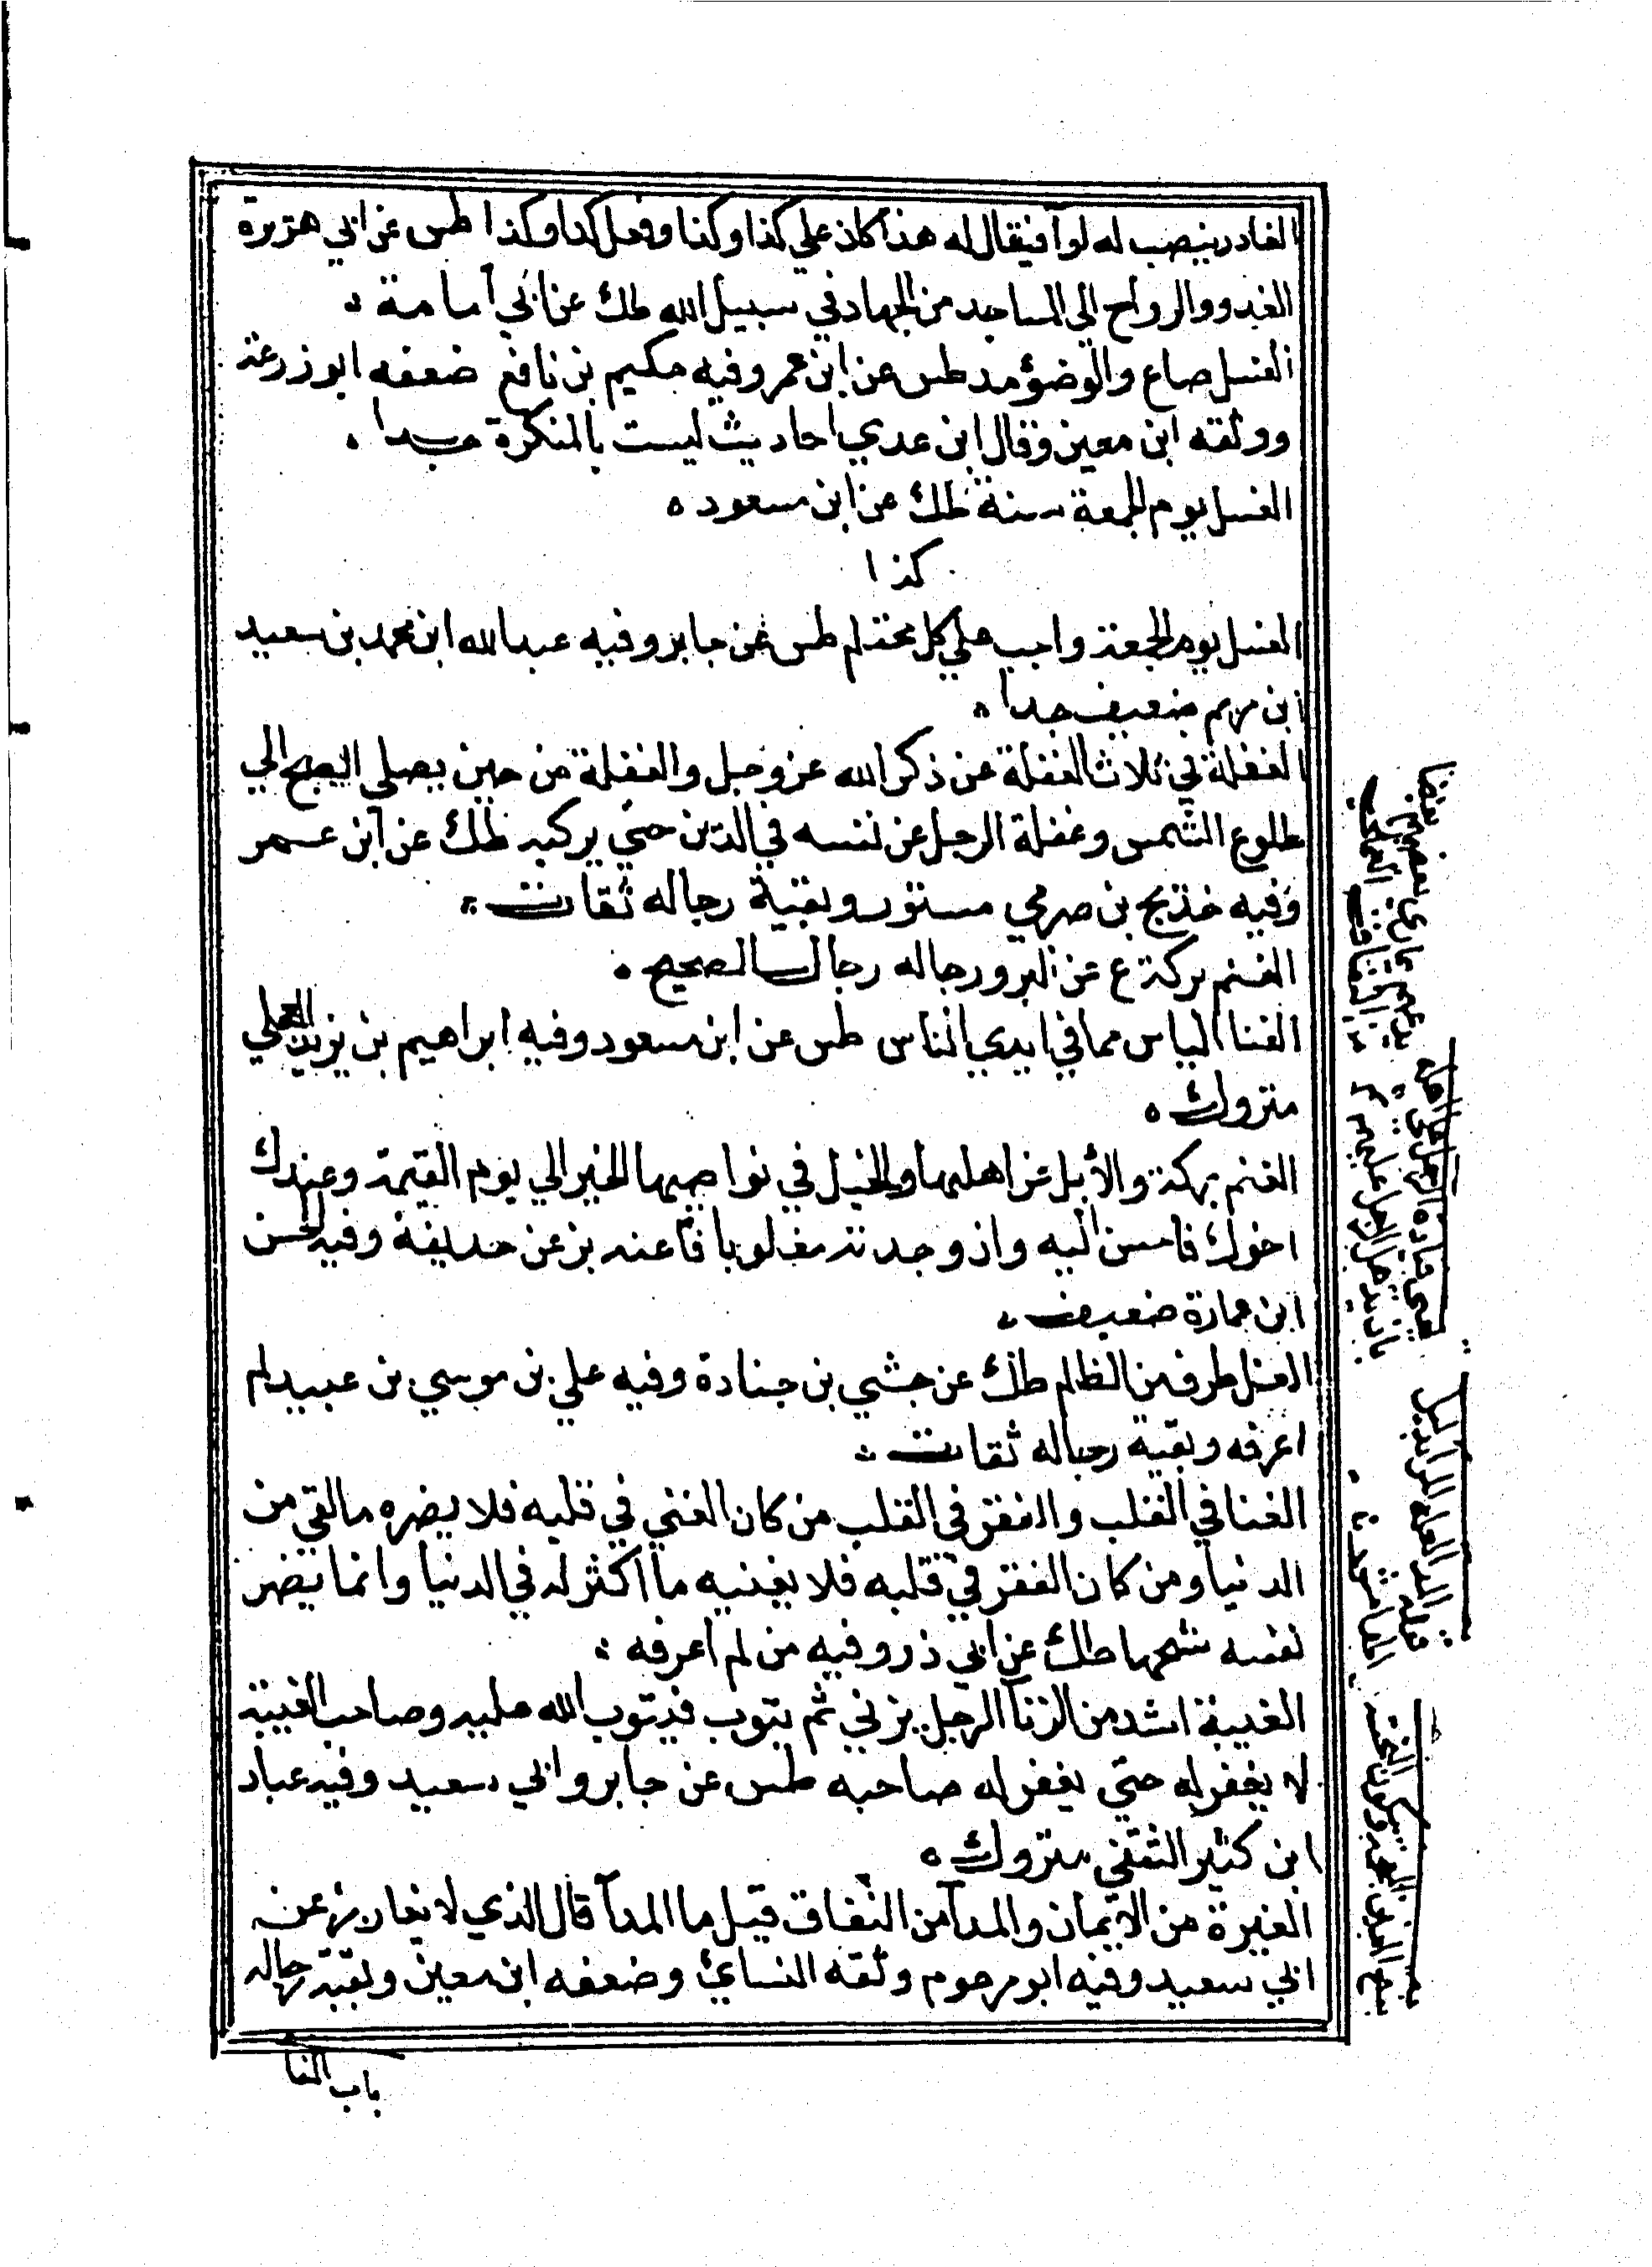 الغادر ينصب له لوآ فيقال له هذا كان علي كذا وكذا وفعل كذا وكذا طس عن ابي هريرة
الغدو والرواح الي المساجد من الجهاد في سبيل الله طك عن ابي أمامة
الغسل صاع والوضؤ مد طس عن ابن عمر وفيه حكيم بن نافع ضعفه ابو زرعة
ووثقه ابن معين وقال ابن عدي احاديث ليست بالمنكرة جدا
الغسل يوم الجمعة سنة طك عن ابن مسعود
كذا
الغسل يوم الجمعة واجب علي كل محتلم طس عن جابر وفيه عبد الله ابن محمد بن سعيد
ابن مريم ضعيف جدا
الغفلة في ثلاث الغفلة عن ذكر الله عز وجل والغفلة من حين يصلي الصبح الي
طلوع الشمس وغفلة الرجل عن نفسه في الدين حتي يركبه طك عن ابن عمر
وفيه خديج بن صرمي مستور وبقية رجاله ثقات
الغنم بركة ع عن البرو رجاله رجال الصحيح
الغنا الياس مما في ايدي الناس طس عن ابن مسعود وفيه ابراهيم بن يزيد العجلي
متروك
الغنم بركة والأبل عز اهلها والخيل في نواصيها الخير الي يوم القيمة وعبدك
اخوك فاحسن اليه وان وجدته مغلوبا فأعنه بز عن حذيفة وفيه الحسن
ابن عمارة ضعيف
الغسل طرف من الظلم طك عن حبشي بن جنادة وفيه علي بن موسي بن عبيد لم
اعرفه وبقية رجاله ثقات
الغنا في القلب والفقر في القلب من كان الغني في قلبه فلا يضره ما لقي من
الدنيا ومن كان الفقر في قلبه فلا يغنيه ما اكثر له في الدنيا وانما يضر
نفسه شحها طك عن ابي ذر وفيه من لم اعرفه
الغيبة اشد من الزنا الرجل يزني ثم يتوب فيتوب الله عليه وصاحب الغيبة
لا يغفر له حتي يغفر له صاحبه طس عن جابر وابي سعيد وفيه عباد
ابن كثير الثقفي متروك
الغيرة من الايمان والمدآ من النفاق قيل ما المدآ قال الذي لا يغار بز عن
ابي سعيد وفيه ابو مرحوم وثقه النسائي وضعفه ابن معين وبقية رجاله
باب الفا